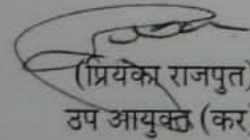 (प्रियंका राजपूत)
उप आयुक्त (कर